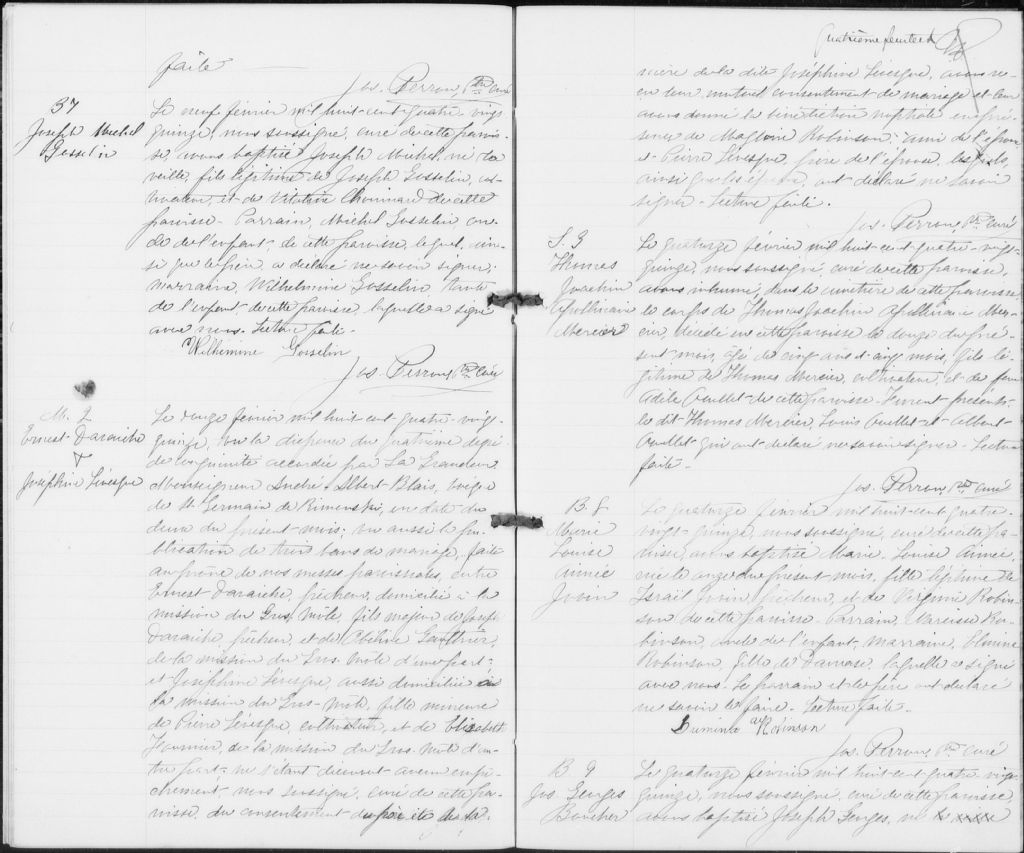 faite
Jos. Perron, Ptre Curé
B7
Joseph Michel
Gosselin
Le neuf février mil huit-cent-quatre-vingt
quinze, nous soussigné, curé de cette parois-
se, avons baptisé Joseph Michel, né la
veille, fils légitime de Joseph Gosselin, cul-
tivateur, et de Vitaline Chouinard de cette
paroisse. Parrain, Michel Gosselin, on-
cle de l'enfant, de cette paroisse, lequel, ain-
si que le père, a déclaré ne savoir signer;
marraine, Wilhelmine Gosselin, tante
de l'enfant de cette paroisse, laquelle a signé
avec nous. Lecture faite.
Wilhimine Gosselin
Jos. Perron, Ptre Curé
M. 2
Ernest Daraiche
&
Joséphine Lévesque
Le onze février mil huit cent quatre-vingt
quinze, vu la dispense du quatrième degré
de consanguinité accordée par Sa Grandeur
Monseigneur André-Albert Blais, évêque
de St Germain de Rimouski, en date du
deux du présent mois; vu aussi la pu-
blication de trois bans de mariage, faite
au prône de nos messes paroissiales, entre
Ernest Daraiche, pêcheur, domicilié à la
mission du Gros-Mâle, fils majeur de Joseph
Daraiche, pêcheur, et de Gauthier,
de la mission du Gros-Mâle d'une part;
et Joséphine Lévesque, aussi domiciliée à
la mission du Gros-Mâle, fille mineure
de Pierre Lévesque, cultivateur, et de Elisabeth
Fournier, de la mission du Gros-Mâle d'au-
tre part; ne s'étant découvert aucun empê-
chement, nous soussigné, curé de cette pa-
roisse, du consentement du père et de la
quatrième feuillet
mère de la dite Joséphine Lévesque, avons re-
çu leur mutuel consentement de mariage et leur
avons donné la bénédiction nuptiale en pré-
sence de Magloire Robinson, ami de l'époux
et Pierre Lévesque, père de l'épouse, lesquels,
ainsi que les époux, ont déclaré ne savoir
signer. Lecture faite.
Jos. Perron, Ptre Curé
S. 3
Thomas
Joachim
Apollinaire
Mercier
Le quatorze février mil huit-cent-quatre-vingt-
quinze, nous soussigné, curé de cette paroisse,
avons inhumé, dans le cimetière de cette paroisse,
le corps de Thomas Joachim Apollinaire Mer-
cier, décédé en cette paroisse le douze du pré-
sent mois, âgé de cinq ans et cinq mois, fils lé-
gitime de Thomas Mercier, cultivateur, et de feue
Adèle Ouellet de cette paroisse. Furent présents
le dit Thomas Mercier, Louis Ouellet et Albert
Ouellet qui ont déclaré ne savoir signer. Lecture
faite.
Jos. Perron, Ptre Curé
B. 8
Marie
Louise
Aimée
Join
Le quatorze février mil huit-cent-quatre-
vingt-quinze, nous soussigné, curé de cette pa-
roisse, avons baptisé Marie Louise Aimée,
née le onze du présent mois, fille légitime de
Israïl Join pêcheur, et de Virginie Robin-
son de cette paroisse. Parrain, Narcisse Ro-
binson, oncle de l'enfant; marraine, Elmine
Robinson, fille de Damase, laquelle a signé
avec nous. Le parrain et le père ont déclaré
ne savoir le faire. Lecture faite.
Robinson
Jos. Perron, Ptre Curé
B 9
Jos Georges
Boucher
Le quatorze février mil huit-cent-quatre-vingt
quinze, nous soussigné, curé de cette paroisse,
avons baptisé Joseph Georges, né